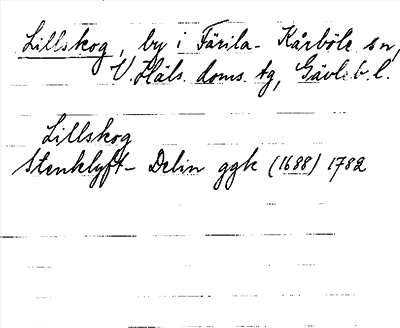 Lillskog, by i Färila-Kårböle sn,
V. Häls. doms. tg, Gävleb. l.
Lillskog
Stenklyft - Delin ggk (1688) 1782